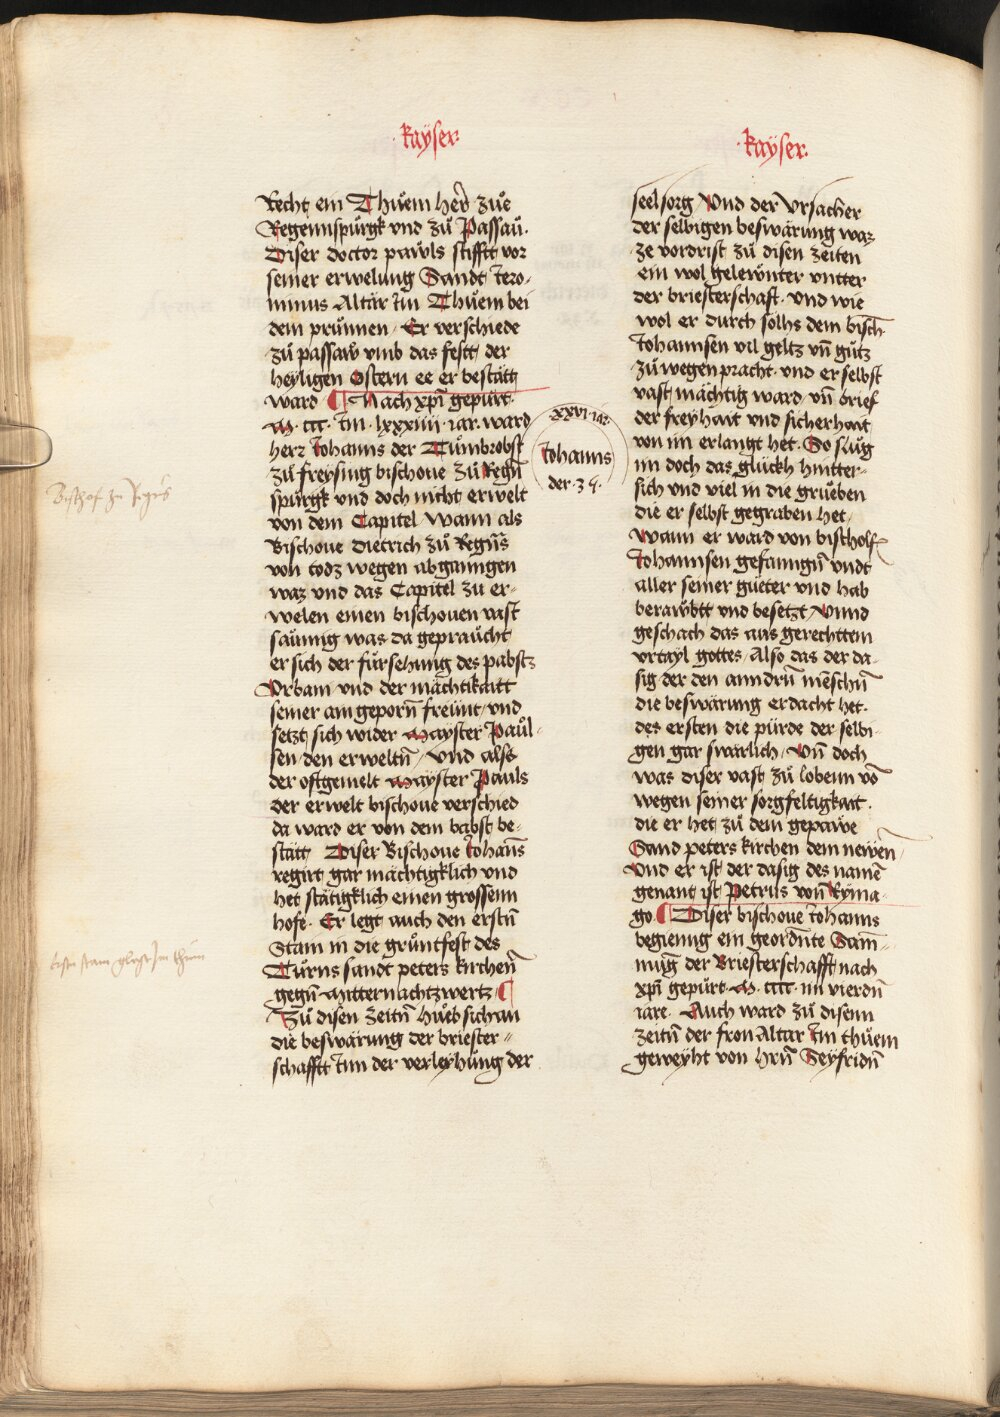 kaÿser
Recht ein Thůem herr zůe
Regennspůrgk vnd zů Passaů.
Diser doctor pawls stifftt vor
seiner erwelung Sandt Jero-
nimus Altar Jm Thůem bei
dem průnnen / Er verschiede
zů passaw vmb das festt der
heyligen Ostern ee er bestätt
ward ¶ Nach xp̄i gepůrt
M. ccc. Jm. lxxxiiii. iar. ward
herr Johanns der Tůmbrobst
zů freysing bischoue zů Regn̄
spůrgk vnd doch nicht erwelt
von dem Capitel / wann als
Bischoue Dietrich zů Regn̄s
von todz wegen abganngen
waz vnd das Capitel zu er-
welen einen bischouen vast
saůmig was da gepraůcht
er sich der fůrsehung des pabstz
Vrbani vnd der mächtikaitt
seiner angeporn̄ freůnt / vnd
setzt sich wider Mayster Paůl-
sen den erweltn̄ / Vnd alss
der oftgemelt Mayster Pauls
der erwelt bischoue verschied
da ward er von dem babst be-
stätt Diser Bischoue Johan̄s
regirt gar mächtigklich vnd
het stätigklich einen grossenn
hofe. Er legt auch den erstn̄
Stam in die grůntfest des
Tůrns sandt peters kirchen̄
gegn̄ Mitternachtzwertz / ¶
Zů disen zeitn̄ hůeb sich an
die beswärung der briester-
schafftt Jnn der verleyhůng der
xxvi. iar.
Johanns
der. 39.
Bischof zu Regn̄s
kaÿser.
seelsorg Vnd der Vrsacher
der selbigen beswärung waz
ze vordrist zů disen zeiten
ein wol gelewnter vntter
der briesterschaft. vnd wie
wol er durch solhs dem bisch
Johannsen vil geltz vn̄ gůtz
zů wegen pracht. vnd er selbst
vast mächtig ward / vn̄ brief
der freyhait vnd sicherhait
von im erlangt het. So slůg
im doch das glückh hintter-
sich vnd viel in die grůeben
die er selbst gegraben het /
Wann er ward von bischolf
Johannsen gefanngn̄ vndt
aller seiner gůeter vnd hab
berawbtt vnd besetzt / Vnnd
geschach das aus gerechttem
vrtayl gottes / Also das der da-
sig der den anndrn̄ men̄schn̄
die beswärung erdacht het.
des ersten die pürde der selbi-
gen gar swärlich / Vn̄ doch
was diser vast zů lobenn vō
wegen seiner sorgfeltigkait.
die er het zů dem gepawe
Sand peters kirchen dem newen̄
Vnd er ist der dasig des namē
genant ist Petrus von̄ Ryma-
go. ¶ Diser bischoue Johanns
begienng ein geordn̄te Sam̄-
nung der Briesterschafft nach
xp̄i gepůrt. M. cccc. im vierdn̄
iare. Auch ward zů disenn
zeitn̄ der fron Altar Jm thůem
geweyht von hrn̄ Seyfridn̄